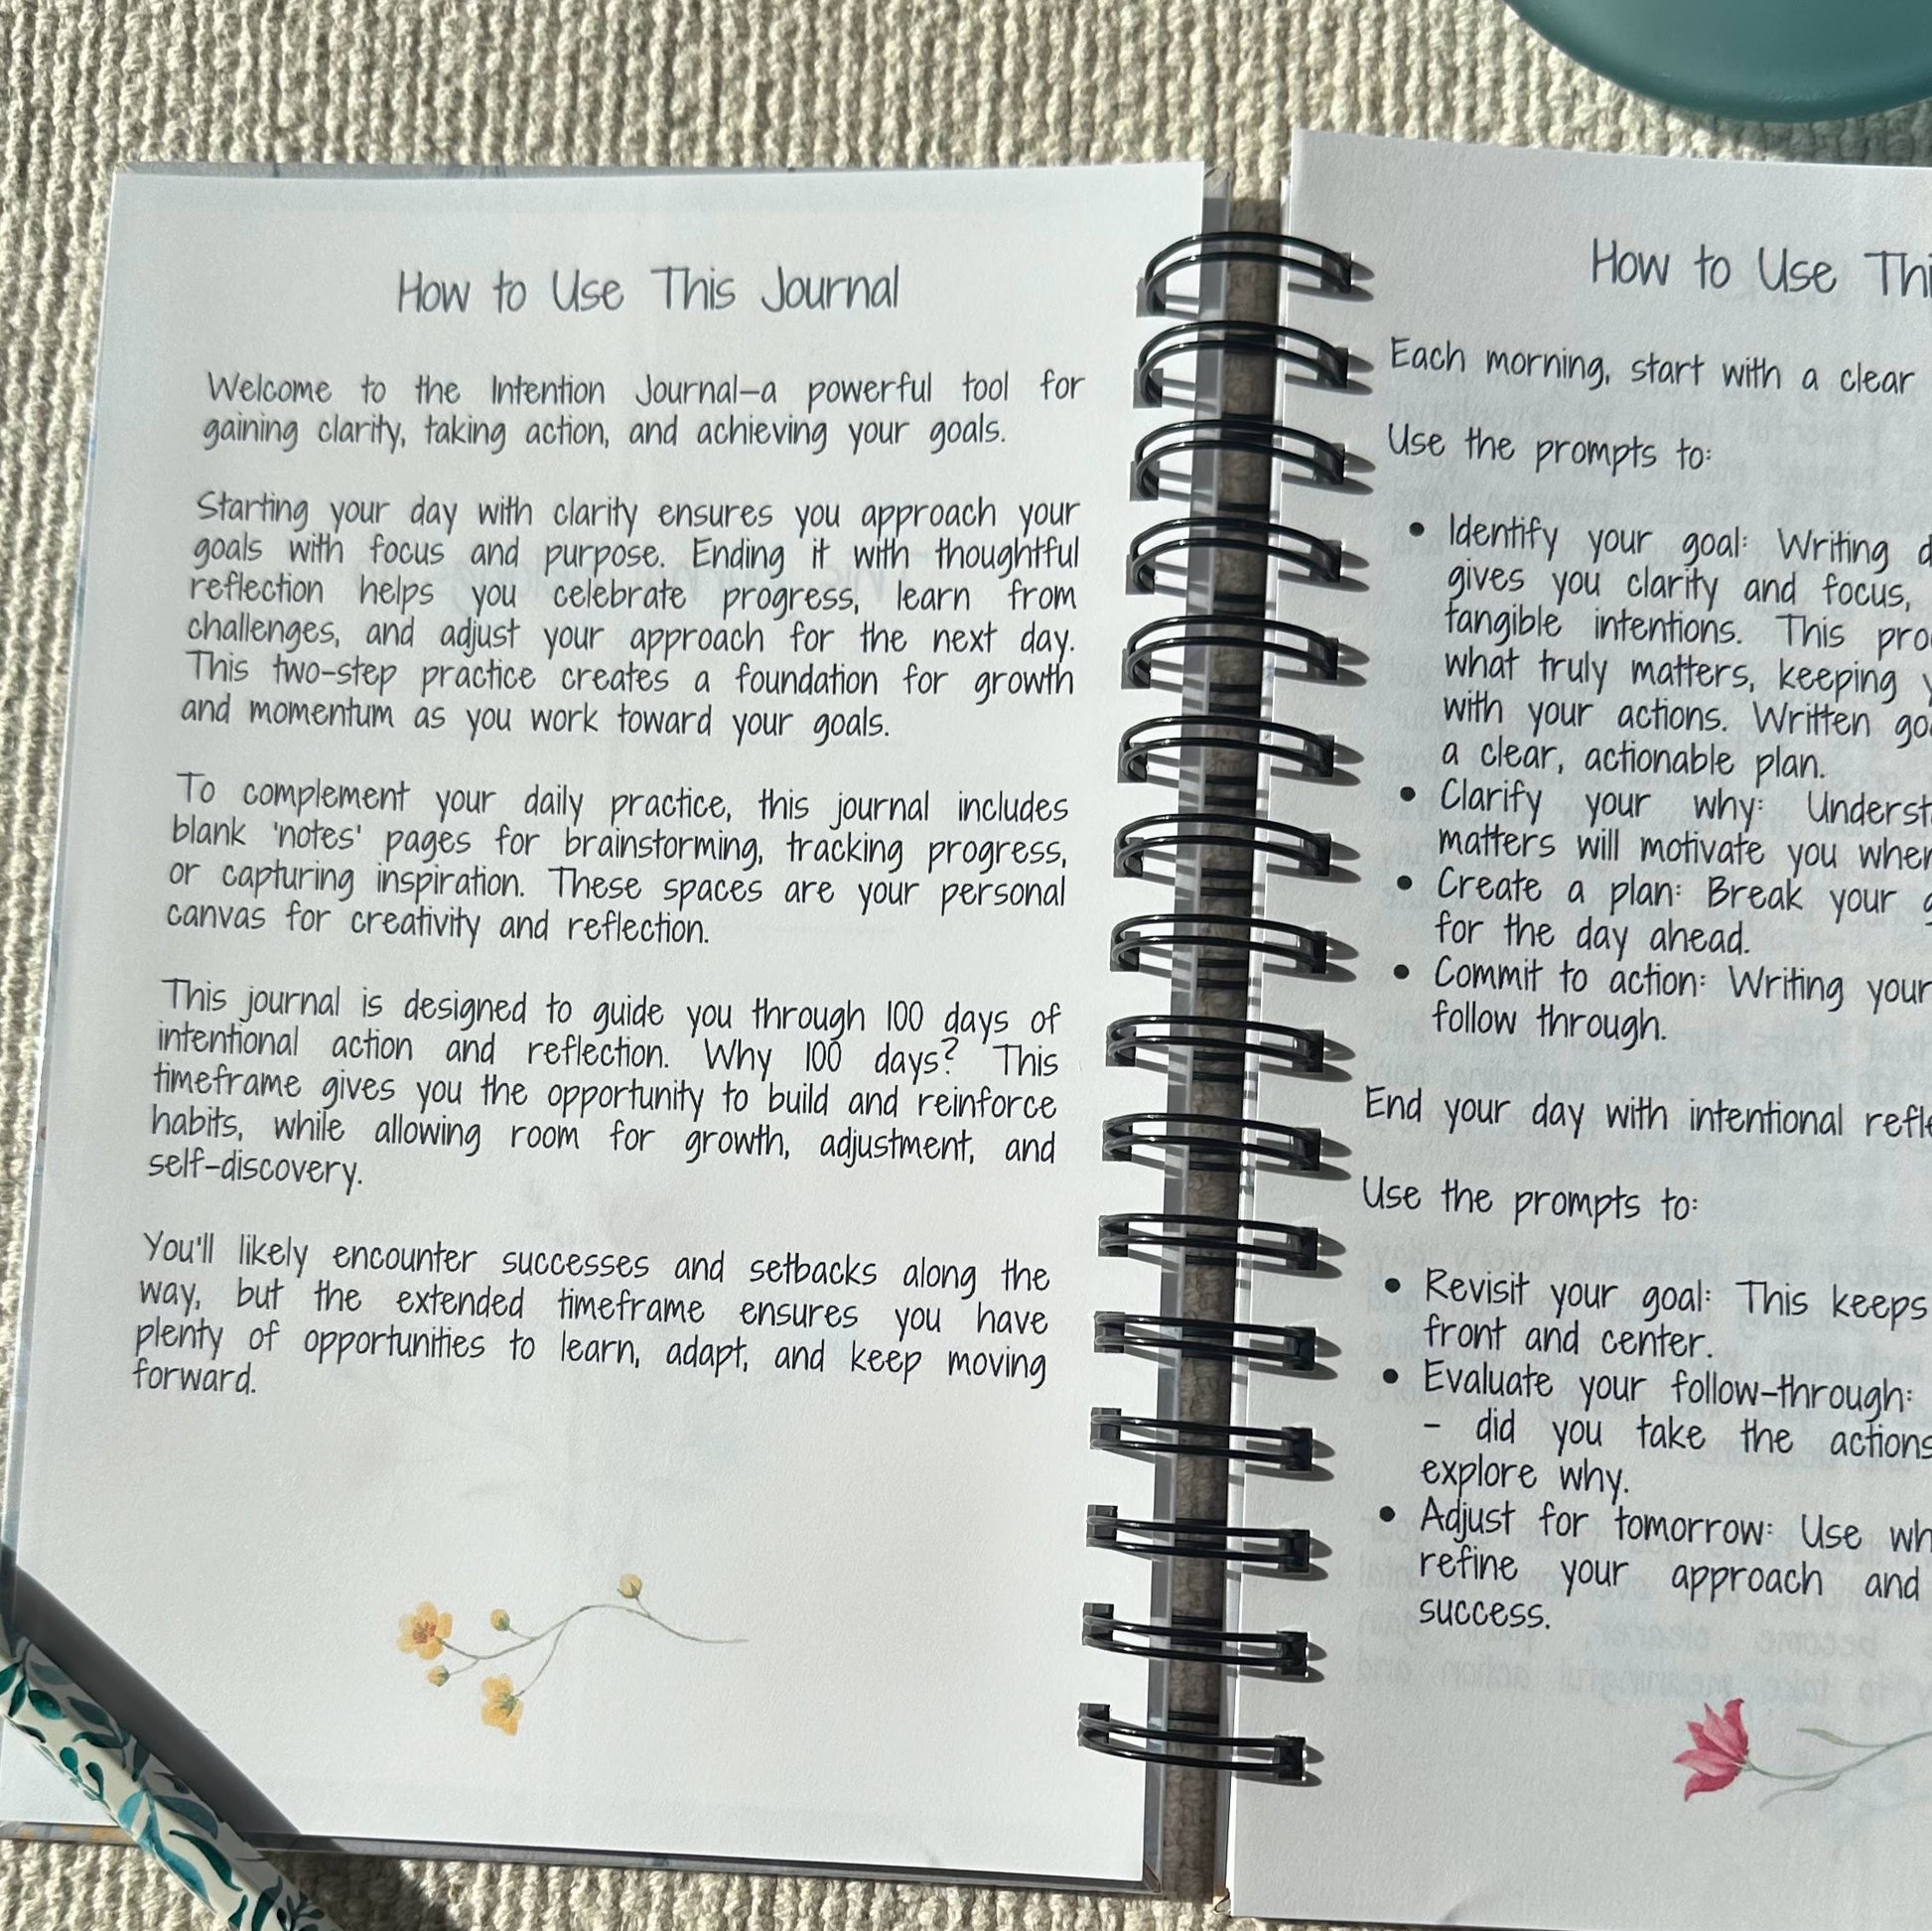 How to Use This Journal
Welcome to the Intention Journal–a powerful tool for
gaining clarity, taking action, and achieving your goals.
Starting your day with clarity ensures you approach your
goals with focus and purpose. Ending it with thoughtful
reflection helps you celebrate progress, learn from
challenges, and adjust your approach for the next day.
This two-step practice creates a foundation for growth
and momentum as you work toward your goals.
To complement your daily practice, this journal includes
blank 'notes' pages for brainstorming, tracking progress,
or capturing inspiration. These spaces are your personal
canvas for creativity and reflection.
This journal is designed to guide you through 100 days of
intentional action and reflection. Why 100 days? This
timeframe gives you the opportunity to build and reinforce
habits, while allowing room for growth, adjustment, and
self-discovery.
You'll likely encounter successes and setbacks along the
way, but the extended timeframe ensures you have
plenty of opportunities to learn, adapt, and keep moving
forward.
How to Use
Each morning, start with a clear
Use the prompts to:
• Identify your goal: Writing
gives you clarity and focus,
tangible intentions. This
what truly matters, keeping
with your actions. Written
a clear, actionable plan.
• Clarify your why:
matters will motivate you
• Create a plan: Break your
for the day ahead.
• Commit to action: Writing your
follow through.
End your day with intentional
Use the prompts to:
• Revisit your goal: This keeps
front and center.
• Evaluate your follow-through:
- did you take the actions
explore why.
• Adjust for tomorrow: Use
refine your approach and
success.